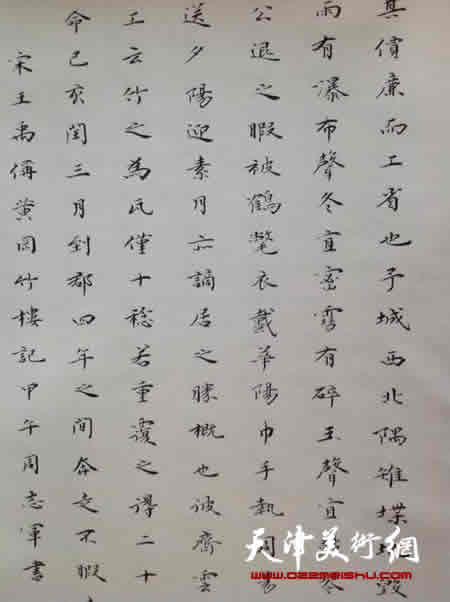 其價廉而工省也予城西北隅雉堞圮毀
而有瀑布聲冬宜密雪有碎玉聲宜
公退之暇被鶴氅衣戴華陽巾手執周易
送夕陽迎素月亦謫居之勝概也彼齊雲
工云竹之為瓦僅十稔若重覆之得二十
命己亥閏三月到郡四年之間奔走不暇
宋王禹偁黃岡竹樓記甲午周志軍書
天津美術網
www.022meishu.com